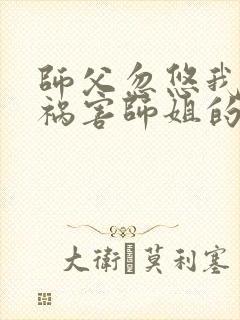 師父忽悠我
禍害師姐的
大衛·莫利塞